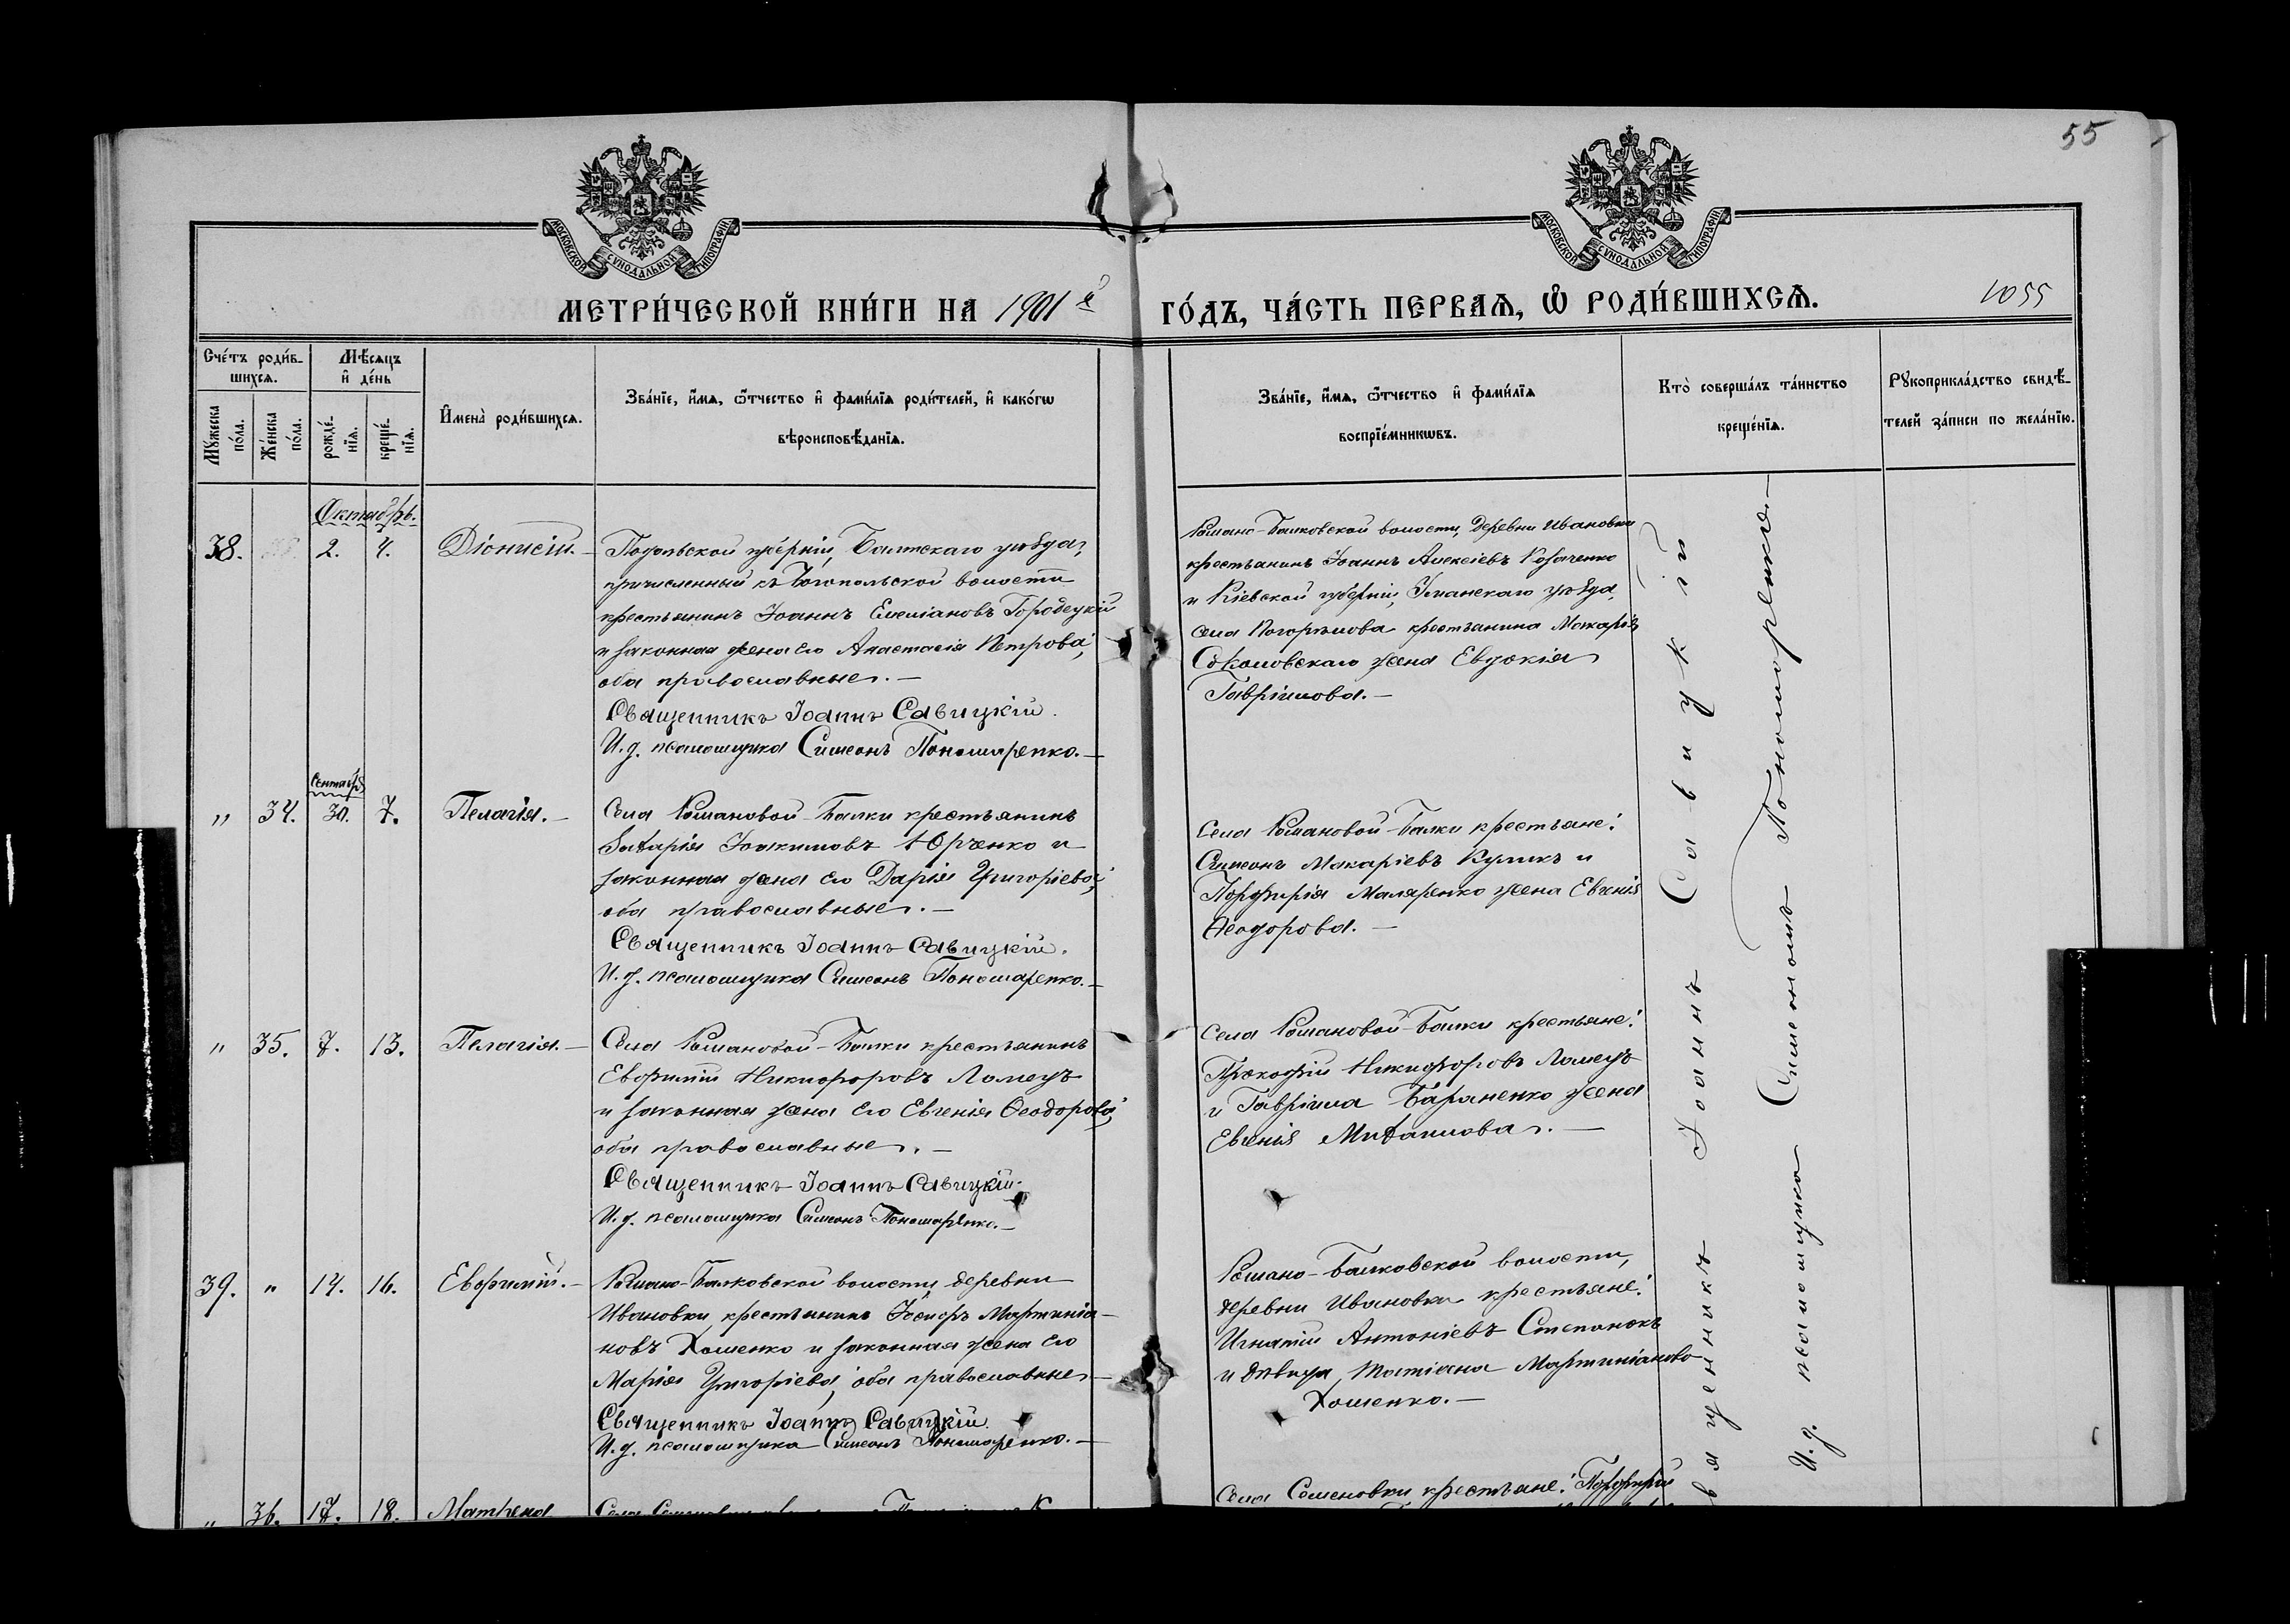 55
МОСКОВСКОЙ СѴНОДАЛЬНОЙ ТИПОГРАФІИ
МОСКОВСКОЙ СѴНОДАЛЬНОЙ ТИПОГРАФІИ
МЕТРИ́ЧЕСКОЙ КНИ́ГИ НА 1901й ГО́ДЪ, ЧА́СТЬ ПЕРВАѦ, Ѽ РОДИ́ВШИХСѦ. 1055
Сче́тъ роди́в-
шихсѧ.
Мѣ́сѧцъ
и҆ де́нь
Мꙋ́жеска
по́ла.
Же́нска
по́ла.
рожде́-
нїѧ.
креще́-
нїѧ.
И҆мена̀ роди́вшихсѧ.
Зва́нїе, и҆́мѧ, ѻ҆́тчество и҆ фами́лїѧ роди́телей, и҆ како́гѡ
вѣроисповѣ́данїѧ.
Зва́нїе, и҆́мѧ, ѻ҆́тчество и҆ фами́лїѧ
воспрїе́мникѡвъ.
Кто̀ соверша́лъ та́инство
креще́нїѧ.
Рꙋкоприкла́дство свидѣ́-
телей за́писи по жела́нїю.
Октябрь.
38. 2. 4. Діонисій.–
Подольской губерніи, Балтскаго уѣзда,
причисленный къ Богопольской волости
крестьянинъ Іоаннъ Емеліановъ Городецкій
и законная жена его Анастасія Петрова,
оба православные.–
Священникъ Іоаннъ Савицкій.
И.д. псаломщика Симеонъ Пономаренко.–
Романо-Балковской волости, деревни Ивановки
крестьянинъ Іоаннъ Алексіевъ Козаченко
и Кіевской губерніи, Уманскаго уѣзда,
села Погорѣлова крестьянина Макарія
Соколовскаго жена Евдокія
Гавріилова.–
Сентябрь
" 34. 30. 7. Пелагія.–
Села Романовой-Балки крестьянинъ
Захарія Іоакимовъ Юрченко и
законная жена его Дарія Григоріева,
оба православные.–
Священникъ Іоаннъ Савицкій.
И.д. псаломщика Симеонъ Пономаренко.–
Села Романовой-Балки крестьяне:
Симеонъ Макаріевъ Куликъ и
Порфирія Маляренко жена Евгенія
Ѳеодорова.–
" 35. 7. 13. Пелагія.–
Села Романовой-Балки крестьянинъ
Евфимій Никифоровъ Ломецъ
и законная жена его Евгенія Ѳеодорова,
оба православные.–
Священникъ Іоаннъ Савицкій.
И.д. псаломщика Симеонъ Пономаренко.–
Села Романовой-Балки крестьяне:
Прокофій Никифоровъ Ломецъ
и Гавріила Бараненко жена
Евгенія Михаилова.–
39. " 14. 16. Евфимій.–
Романо-Балковской волости, деревни
Ивановки, крестьянинъ Іосифъ Мартиніа-
новъ Хоменко и законная жена его
Марія Григоріева, оба православные–
Священникъ Іоаннъ Савицкій.
И.д. псаломщика Симеонъ Пономаренко.–
Романо-Балковской волости,
деревни Ивановки крестьяне:
Игнатій Антоніевъ Степанокъ
и дѣвица Татіана Мартиніанова
Хоменко.–
" 36. 17. 18. Матрена
Села
Села Семеновки крестьяне: Порфирій
вященникъ Іоаннъ Савицкій
И.д. псаломщика Симеонъ Пономаренко.–